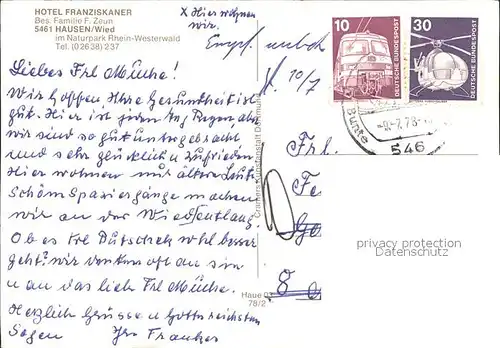 HOTEL FRANZISKANER
Bes. Familie F. Zeun
5461 HAUSEN/Wied
im Naturpark Rhein-Westerwald
Tel. (02638) 237
X Hier wohnen
wir.
10/7
Liebes Frl Müche!
Wir hoffen Ihre Gesundheit ist
gut. Hier ist jeden Tag Regen, aber
wir sind so gut untergebracht
und sehr glücklich u zufrieden.
Hier wohnen nur ältere Leute
Schöm Spaziergänge machen
wir an der Wied entlang.
Ob es Frl Butschek wohl besser
geht? wir denken oft an sie
u an das liebe Frl Müche.
Herzlich Grüsse u Gottesreichsten
Segen Ihr Franker
Cramers Kunstanstalt Dortmund
Haue
78/2
10
DEUTSCHE BUNDESPOST
30
DEUTSCHE BUNDESPOST
7.78
546
Frl.
privacy protection